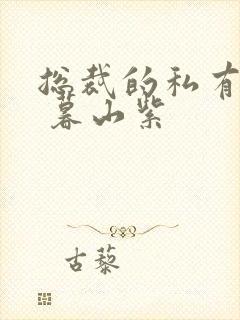 总裁的私有
暮山紫
古藜